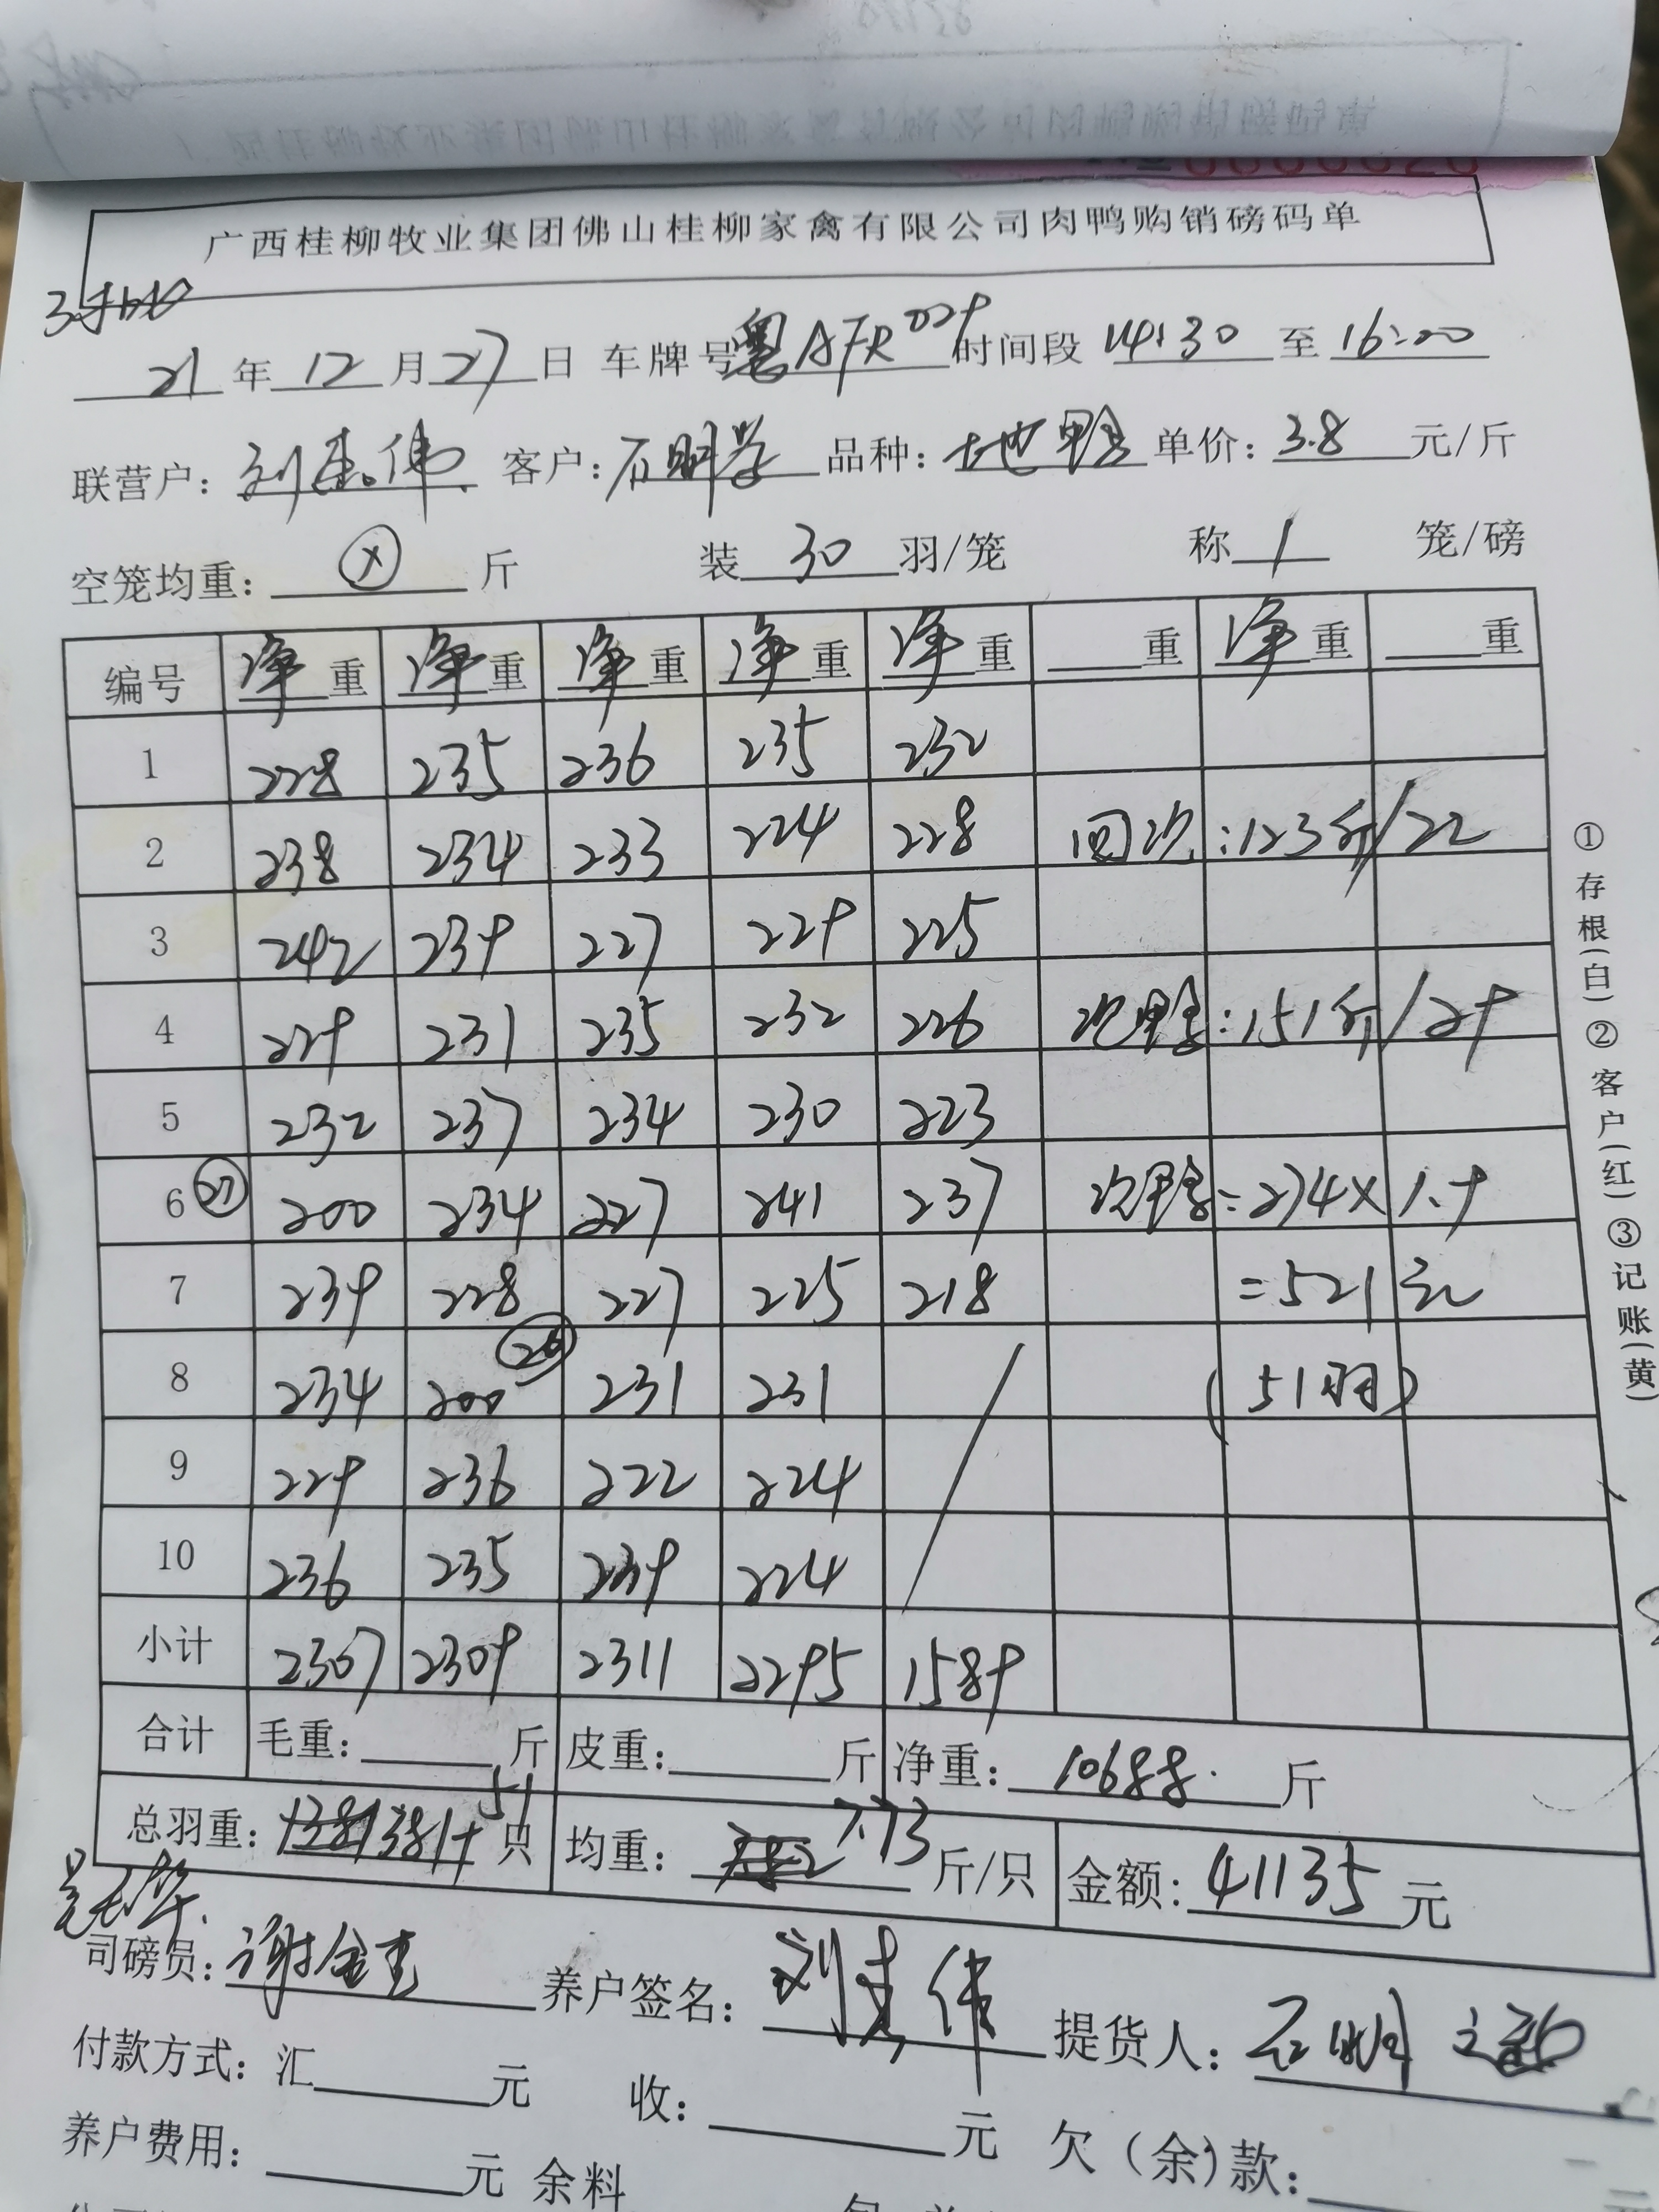 广西桂柳牧业集团佛山桂柳家禽有限公司肉鸭购销磅码单
21年12月27日 车牌号粤AFR029时间段14:30至16:00
联营户: 刘志伟 客户:石明学 品种:土地鸭 单价:3.8元/斤
空笼均重: X 斤 装30羽/笼 称1笼/磅
编号 净重 净重 净重 净重 净重 重 净重 重
1 228 235 236 235 232
2 238 234 233 224 228 回次:123斤/22
3 242 239 227 229 225
4 229 231 235 232 226 次鸭:151斤/29
5 232 237 234 230 223
6 27 200 234 227 241 237 次鸭=274×1.9
7 239 228 227 225 218 =521元
8 234 200 26 231 231 (51羽)
9 229 236 222 224
10 236 235 239 224
小计 2307 2309 2311 2295 1589
合计 毛重: 斤 皮重: 斤 净重: 10688. 斤
总羽重: 1381+51只 均重: 7.73斤/只 金额: 41135元
司磅员: 谢金 养户签名: 刘志伟 提货人: 石明
付款方式: 汇 元 收: 元 欠(余)款: 元
养户费用: 元 余料
①存根(白)②客户(红)③记账(黄)